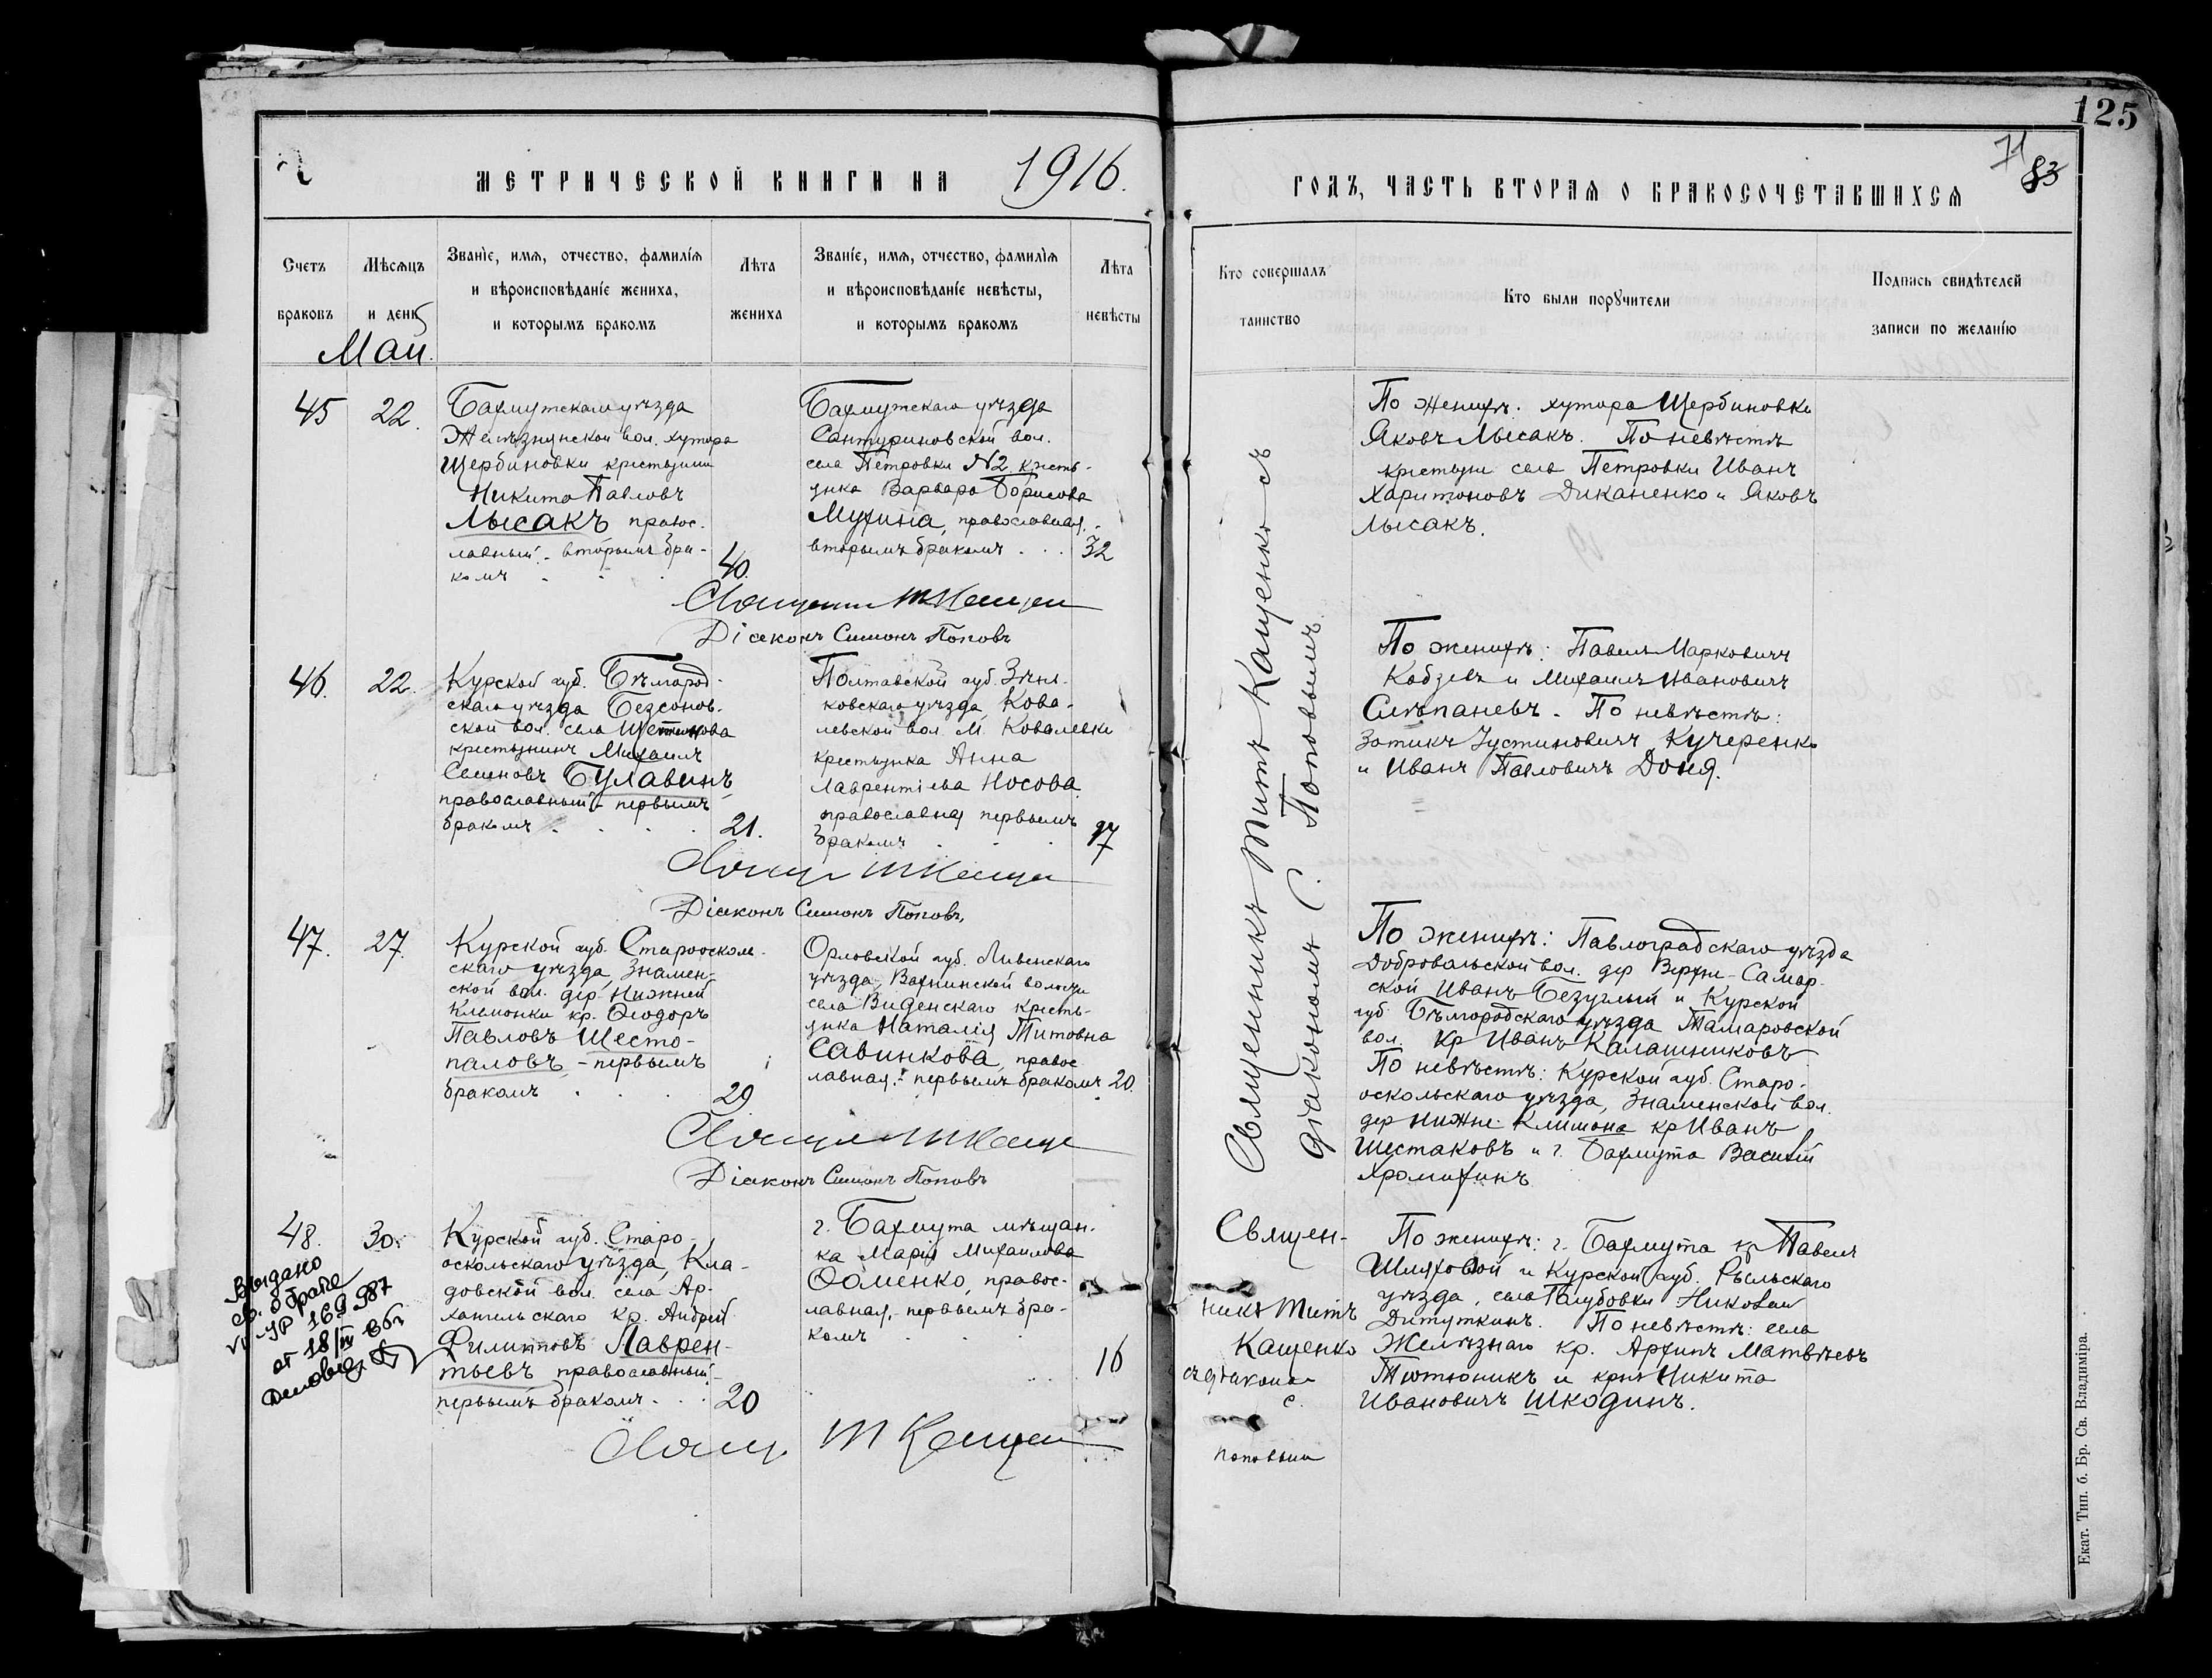 125
71
83
МЕТРИЧЕСКОЙ КНИГИ НА 1916.
ГОДЪ, ЧАСТЬ ВТОРАЯ О БРАКОСОЧЕТАВШИХСЯ
Счетъ
браковъ
Мѣсяцъ
и день
Званіе, имя, отчество, фамилія
и вѣроисповѣданіе жениха,
и которымъ бракомъ
Лѣта
жениха
Званіе, имя, отчество, фамилія
и вѣроисповѣданіе невѣсты,
и которымъ бракомъ
Лѣта
невѣсты
Кто совершалъ
таинство
Кто были поручители
Подпись свидѣтелей
записи по желанію
Май.
45
22.
Бахмутскаго уѣзда
Желѣзнянской вол. хутора
Щербиновки крестьянин
Никита Павловъ
Лысакъ правос-
лавный. - вторымъ бра-
комъ
40.
Бахмутскаго уѣзда
Сантуриновской вол.
села Петровки №2 кресть-
янка Варвара Борисова
Мухина, православная,
вторымъ бракомъ
32
Діаконъ Симонъ Поповъ
46.
22.
Курской губ. Бѣлгород-
скаго уѣзда Безсонов-
ской вол. села
крестьянинъ Михаилъ
Семеновъ Булавинъ
православный - первымъ
бракомъ
21.
Полтавской губ. Зѣнь-
ковскаго уѣзда, Кова-
левской вол. м. Ковалевки
крестьянка Анна
Лаврентіева Носова
православная первымъ
бракомъ
Діаконъ Симонъ Поповъ
47.
27.
Курской губ. Старооколь-
скаго уѣзда, Знамен-
ской вол. дер. Нижней
кр. Ѳеодоръ
Павловъ Шесто-
паловъ - первымъ
бракомъ
29
Орловской губ. Ливенскаго
уѣзда, Вахнинской волости
села Виденскаго кресть-
янка Наталія Титовна
Савинкова, правос
лавная. - первымъ бракомъ
20.
Діаконъ Симонъ Поповъ
48.
30.
Курской губ. Старо-
оскольскаго уѣзда, Кла-
довской вол. села Ар-
хангельскаго кр. Андрей
Филипповъ Лаврен-
тьевъ православный -
первымъ бракомъ
20
г. Бахмута мѣщан-
ка Марія Михаилова
Ѳоменко, правос-
лавная, - первымъ бра-
комъ
16
Выдано
св. о браке
169987
от 18/IV
Священникъ Титъ Кащенко съ
діакономъ С. Поповымъ.
По женихѣ: хутора Щербиновки
Яковъ Лысакъ. По невѣстѣ
крестьяне села Петровки Иванъ
Харитоновъ Диканенко и Яковъ
Лысакъ.
По женихѣ: Павелъ Марковичъ
Кобзевъ и Михаилъ Ивановичъ
Слѣпаневъ. По невѣстѣ:
Зотикъ Іустиновичъ Кучеренко
и Иванъ Павловичъ Доня.
По женихѣ: Павлоградскаго уѣзда
Добровольской вол. дер Верхне-Самар-
ской Иванъ Безуглый и Курской
губ. Бѣлгородскаго уѣзда Тамаровской
вол. кр Иванъ Калашниковъ
По невѣстѣ: Курской губ. Старо-
оскольскаго уѣзда, Знаменской вол.
дер Нижне кр Иванъ
Шестаковъ и г. Бахмута Василій
Хромихинъ
Священ-
никъ Титъ
Кащенко
съ діаконом
С.
Поповым
По женихѣ: г. Бахмута кр Павелъ
Шляховой и Курской губ. Рыльскаго
уѣзда, села Голубовки Николай
Дитуткинъ. По невѣстѣ: села
Желѣзнаго кр. Архипъ Матвѣевъ
Тютюникъ и крнъ Никита
Ивановичъ Шкодинъ.
Екат. Тип. б. Бр. Св. Владиміра.